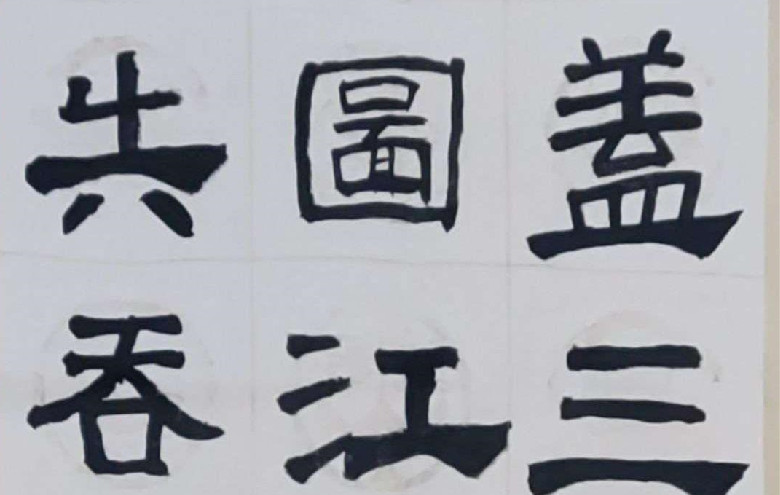 盖三
圖江
失吞